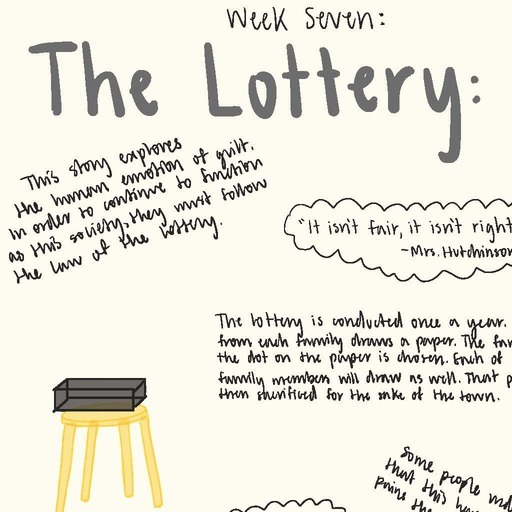 Week Seven:
The Lottery:
This story explores
the human emotion of guilt.
In order to continue to function
as this society, they must follow
the law of the lottery.
"It isn't fair, it isn't right
~Mrs. Hutchinson
The lottery is conducted once a year.
from each family draws a paper. The
the dot on the paper is chosen. Each of
family members will draw as well. That
then sacrificed for the sake of the town.
Some people
that this